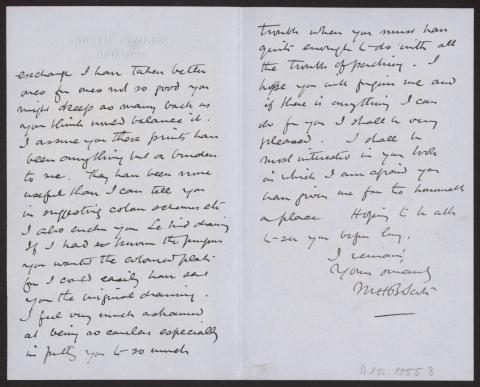 exchange I have taken better
ones for ones not so good you
might keep as many back as
you think would balance it.
I assure you these prints have
been anything but a burden
to me. They have been more
useful than I can tell you
in suggesting colour schemes etc
I also enclose you drawing
If I had known the purpose
you wanted the coloured plate
for I could easily have sent
you the original drawing.
I feel very much ashamed
at being so careless especially
in putting you to so much
trouble when you must have
quite enough to do with all
the trouble of packing. I
hope you will forgive me and
if there is anything I can
do for you I shall be very
pleased. I shall be
most interested in your book
in which I am afraid you
have given me far too honourable
a place Hoping to be able
to see you before long.
I remain
Yours sincerely
MHBScott
D 152.1055 3